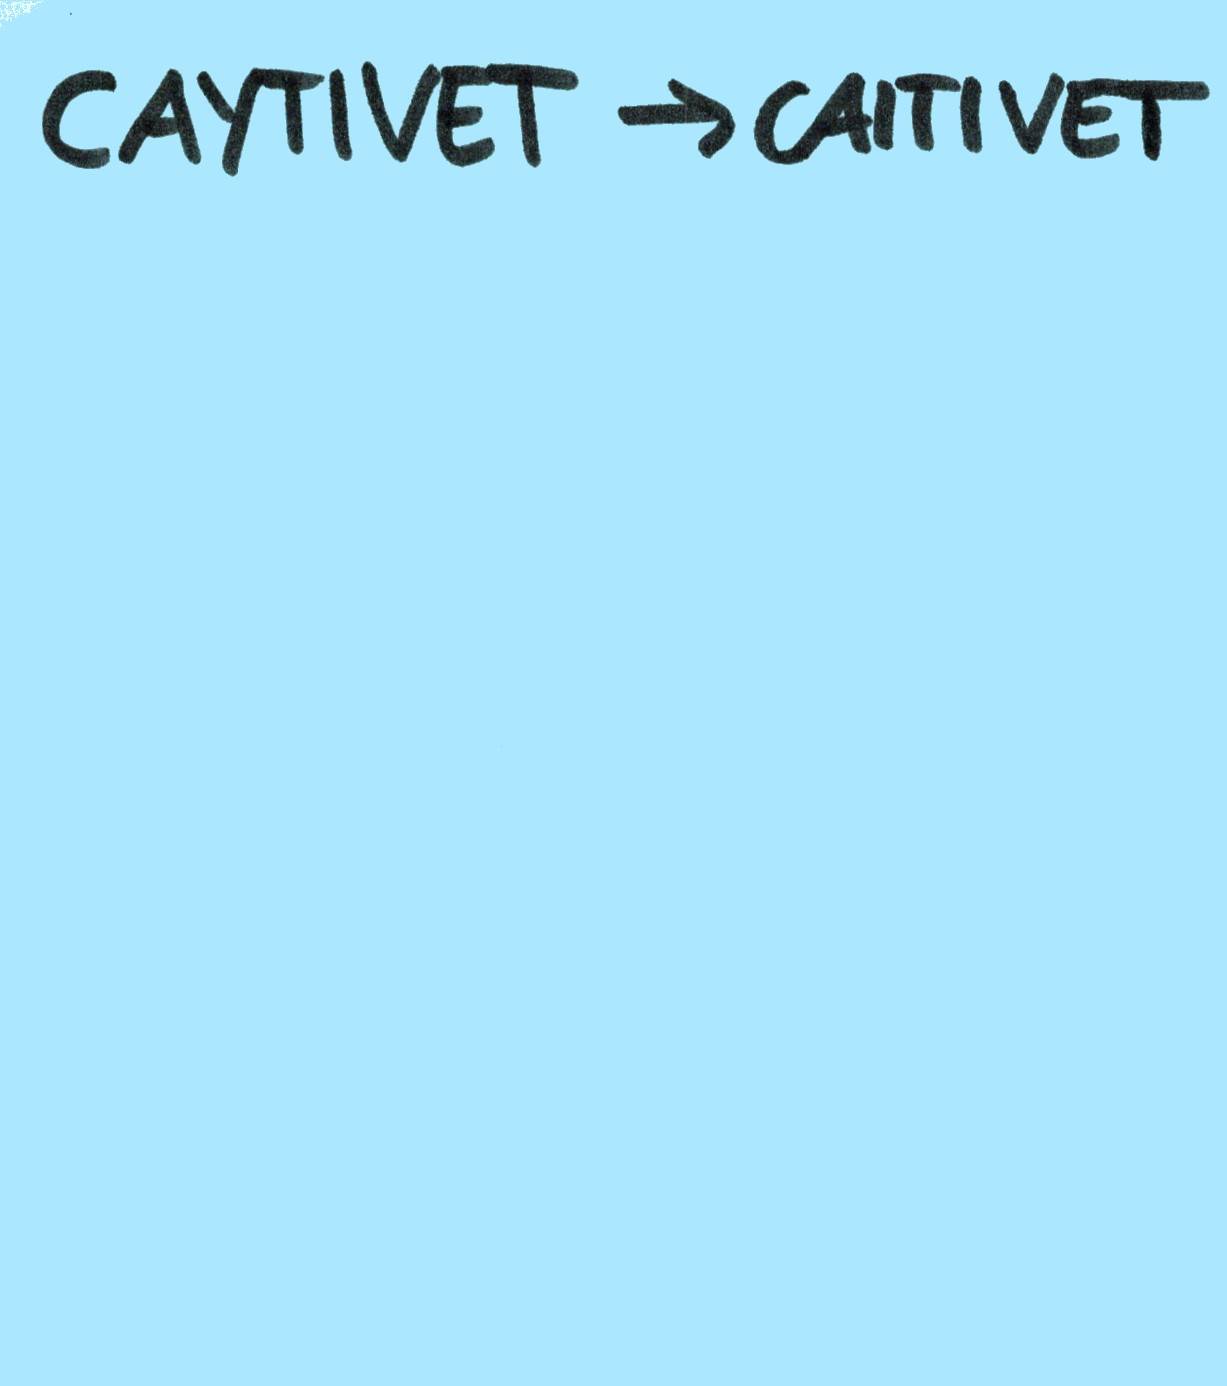 CAYTIVET → CAITIVET